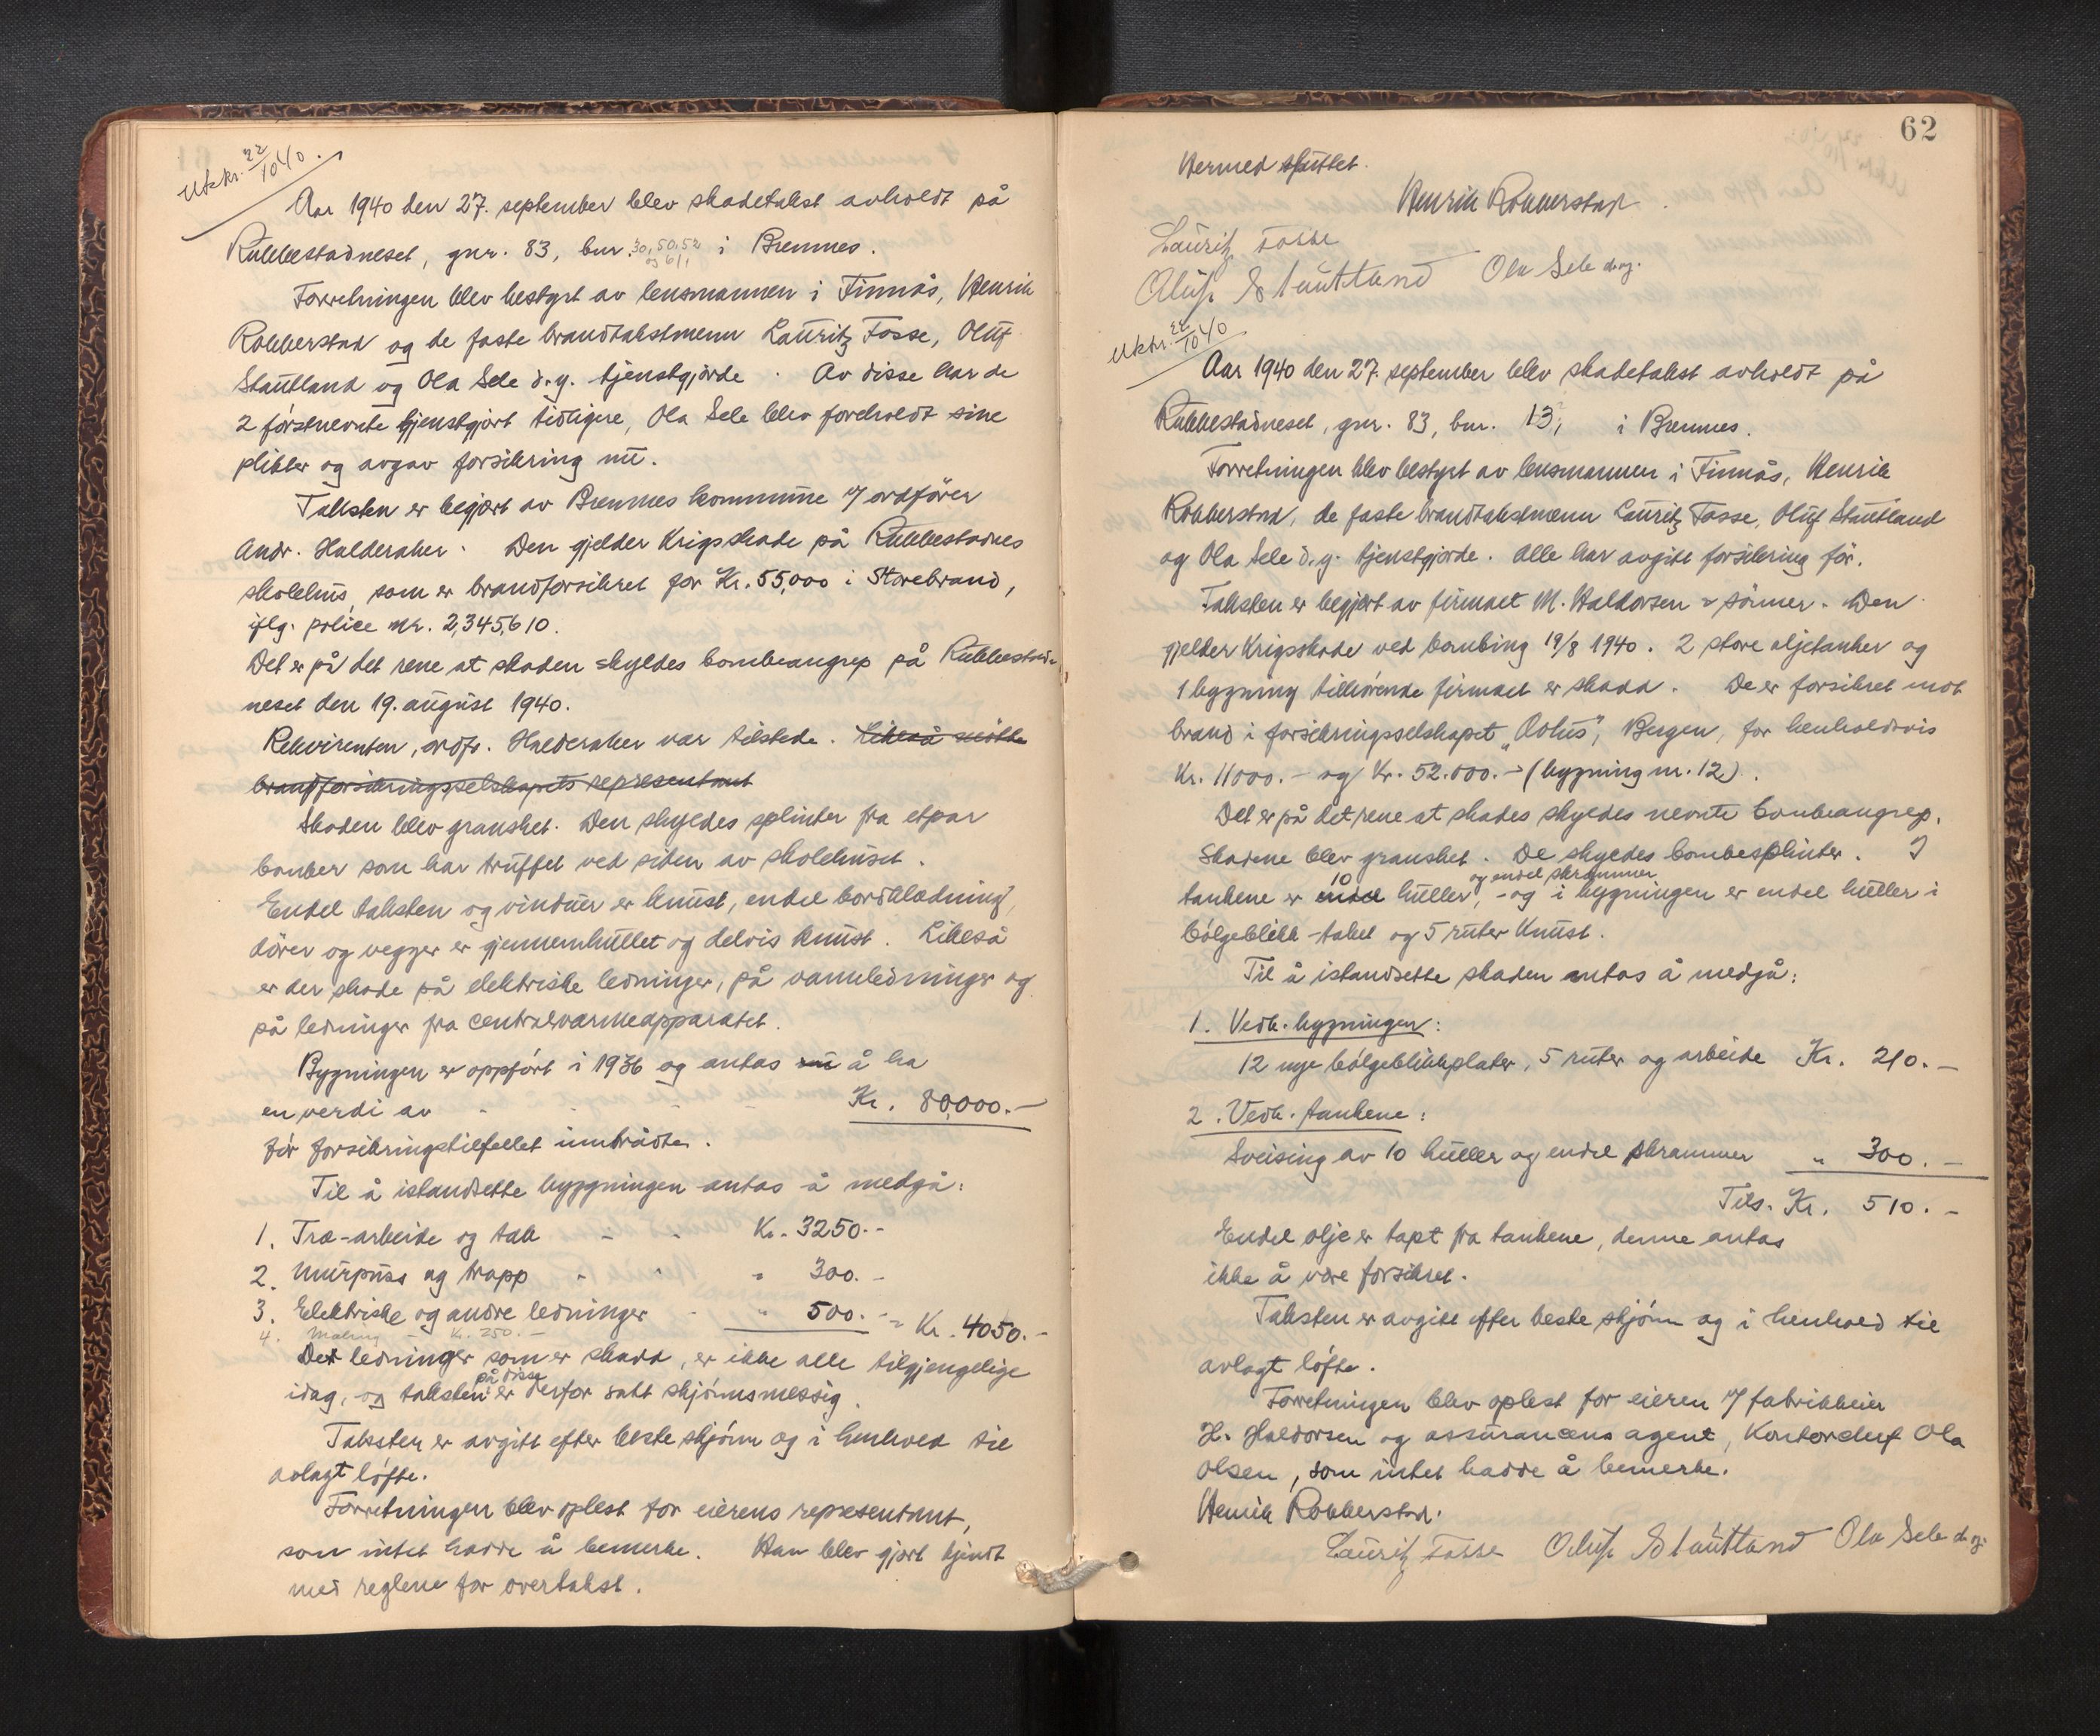 Utskr. 22/10 40.
Aar 1940 den 27. september blev skadetakst avholdt på
Rubbestadneset, gnr. 83, bnr. 30, 50, 52 og 611 i Bremnes.
Forretningen blev bestyrt av lensmannen i Finnås, Henrik
Robberstad og de faste brandtakstmenn Lauritz Fosse, Oluf
Stautland og Ola Sele d.y. tjenstgjorde. Av disse har de
2 förstnevnte tjenstgjort tidligere, Ola Sele blev foreholdt sine
plikter og avgav forsikring nu.
Taksten er begjært av Bremnes kommune v/ ordförer
Andr. Halderaker. Den gjelder krigsskade på Rubbestadnes
skolehus, som er brandforsikret for Kr. 55,000 i Storebrand,
iflg. police nr. 2,345,610.
Det er på det rene at skaden skyldes bombeangrep på Rubbestad-
neset den 19. august 1940.
Rekvirenten, ordf. Halderaker var tilstede. Likeså møtte
brandforsikringsselskapets representant
Skaden blev gransket. Den skyldes splinter fra etpar
bomber som har truffet ved siden av skolehuset.
Endel taksten og vinduer er knust, endel bordklædning,
dörer og vegger er gjennemhullet og delvis knust. Likeså
er der skade på elektriske ledninger, på vannledninger og
på ledninger fra centralvarmeapparatet.
Bygningen er oppfört i 1936 og antas nu å ha
en verdi av Kr. 80,000.-
för forsikringstilfellet inntrådte.
Til å istandsette bygningen antas å medgå:
1. Træ-arbeide og tak - - Kr. 3250.-
2. Murpuss og trapp - - " 300.-
3. Elektriske og andre ledninger - " 500.- = Kr. 4050.-
4. Maling - Kr. 250.-
Det ledninger som er skadd, er ikke alle tilgjengelige
idag, og taksten på disse er derfor satt skjönnsmessig.
Taksten er avgitt efter beste skjönn og i henhold til
avlagt löfte.
Forretningen blev oplest for eierens representant,
som intet hadde å bemerke. Han blev gjort kjendt
med reglene for overtakst.
62
Hermed sluttet.
Henrik Robberstad.
Lauritz Fosse
Oluf Stautland Ola Sele d.y.
Utskr. 22/10 40
Aar 1940 den 27. september blev skadetakst avholdt på
Rubbestadneset, gnr. 83, bnr. 13, i Bremnes.
Forretningen blev bestyrt av lensmannen i Finnås, Henrik
Robberstad, de faste brandtakstmenn Lauritz Fosse, Oluf Stautland
og Ola Sele d.y. tjenstgjorde. Alle har avgitt forsikring för.
Taksten er begjært av firmaet M. Haldorsen & sönner. Den
gjelder krigsskade ved bombing 19/8 1940. 2 store oljetanker og
1 bygning tilhörende firmaet er skadd. De er forsikret mot
brand i forsikringsselskapet "Æolus", Bergen, for henholdsvis
Kr. 11000.- og Kr. 52.000.- (bygning nr. 12).
Det er på det rene at skades skyldes nevnte bombeangrep.
Skadene blev gransket. De skyldes bombesplinter. I
tankene er endel 10 huller, og endel skrammer - og i bygningen er endel huller i
bölgeblikk-taket og 5 ruter knust.
Til å istandsette skaden antas å medgå:
1. Vedk. bygningen:
12 nye bölgeblikkplater, 5 ruter og arbeide Kr. 210.-
2. Vedk. tankene:
Sveising av 10 huller og endel skrammer " 300.-
Tils. Kr. 510.-
Endel olje er tapt fra tankene, denne antas
ikke å være forsikret.
Taksten er avgitt efter beste skjönn og i henhold til
avlagt löfte.
Forretningen blev oplest for eieren v/ fabrikkeier
H. Haldorsen og assuransens agent, Kontorchef Ola
Olsen, som intet hadde å bemerke.
Henrik Robberstad.
Lauritz Fosse Oluf Stautland Ola Sele d.y.